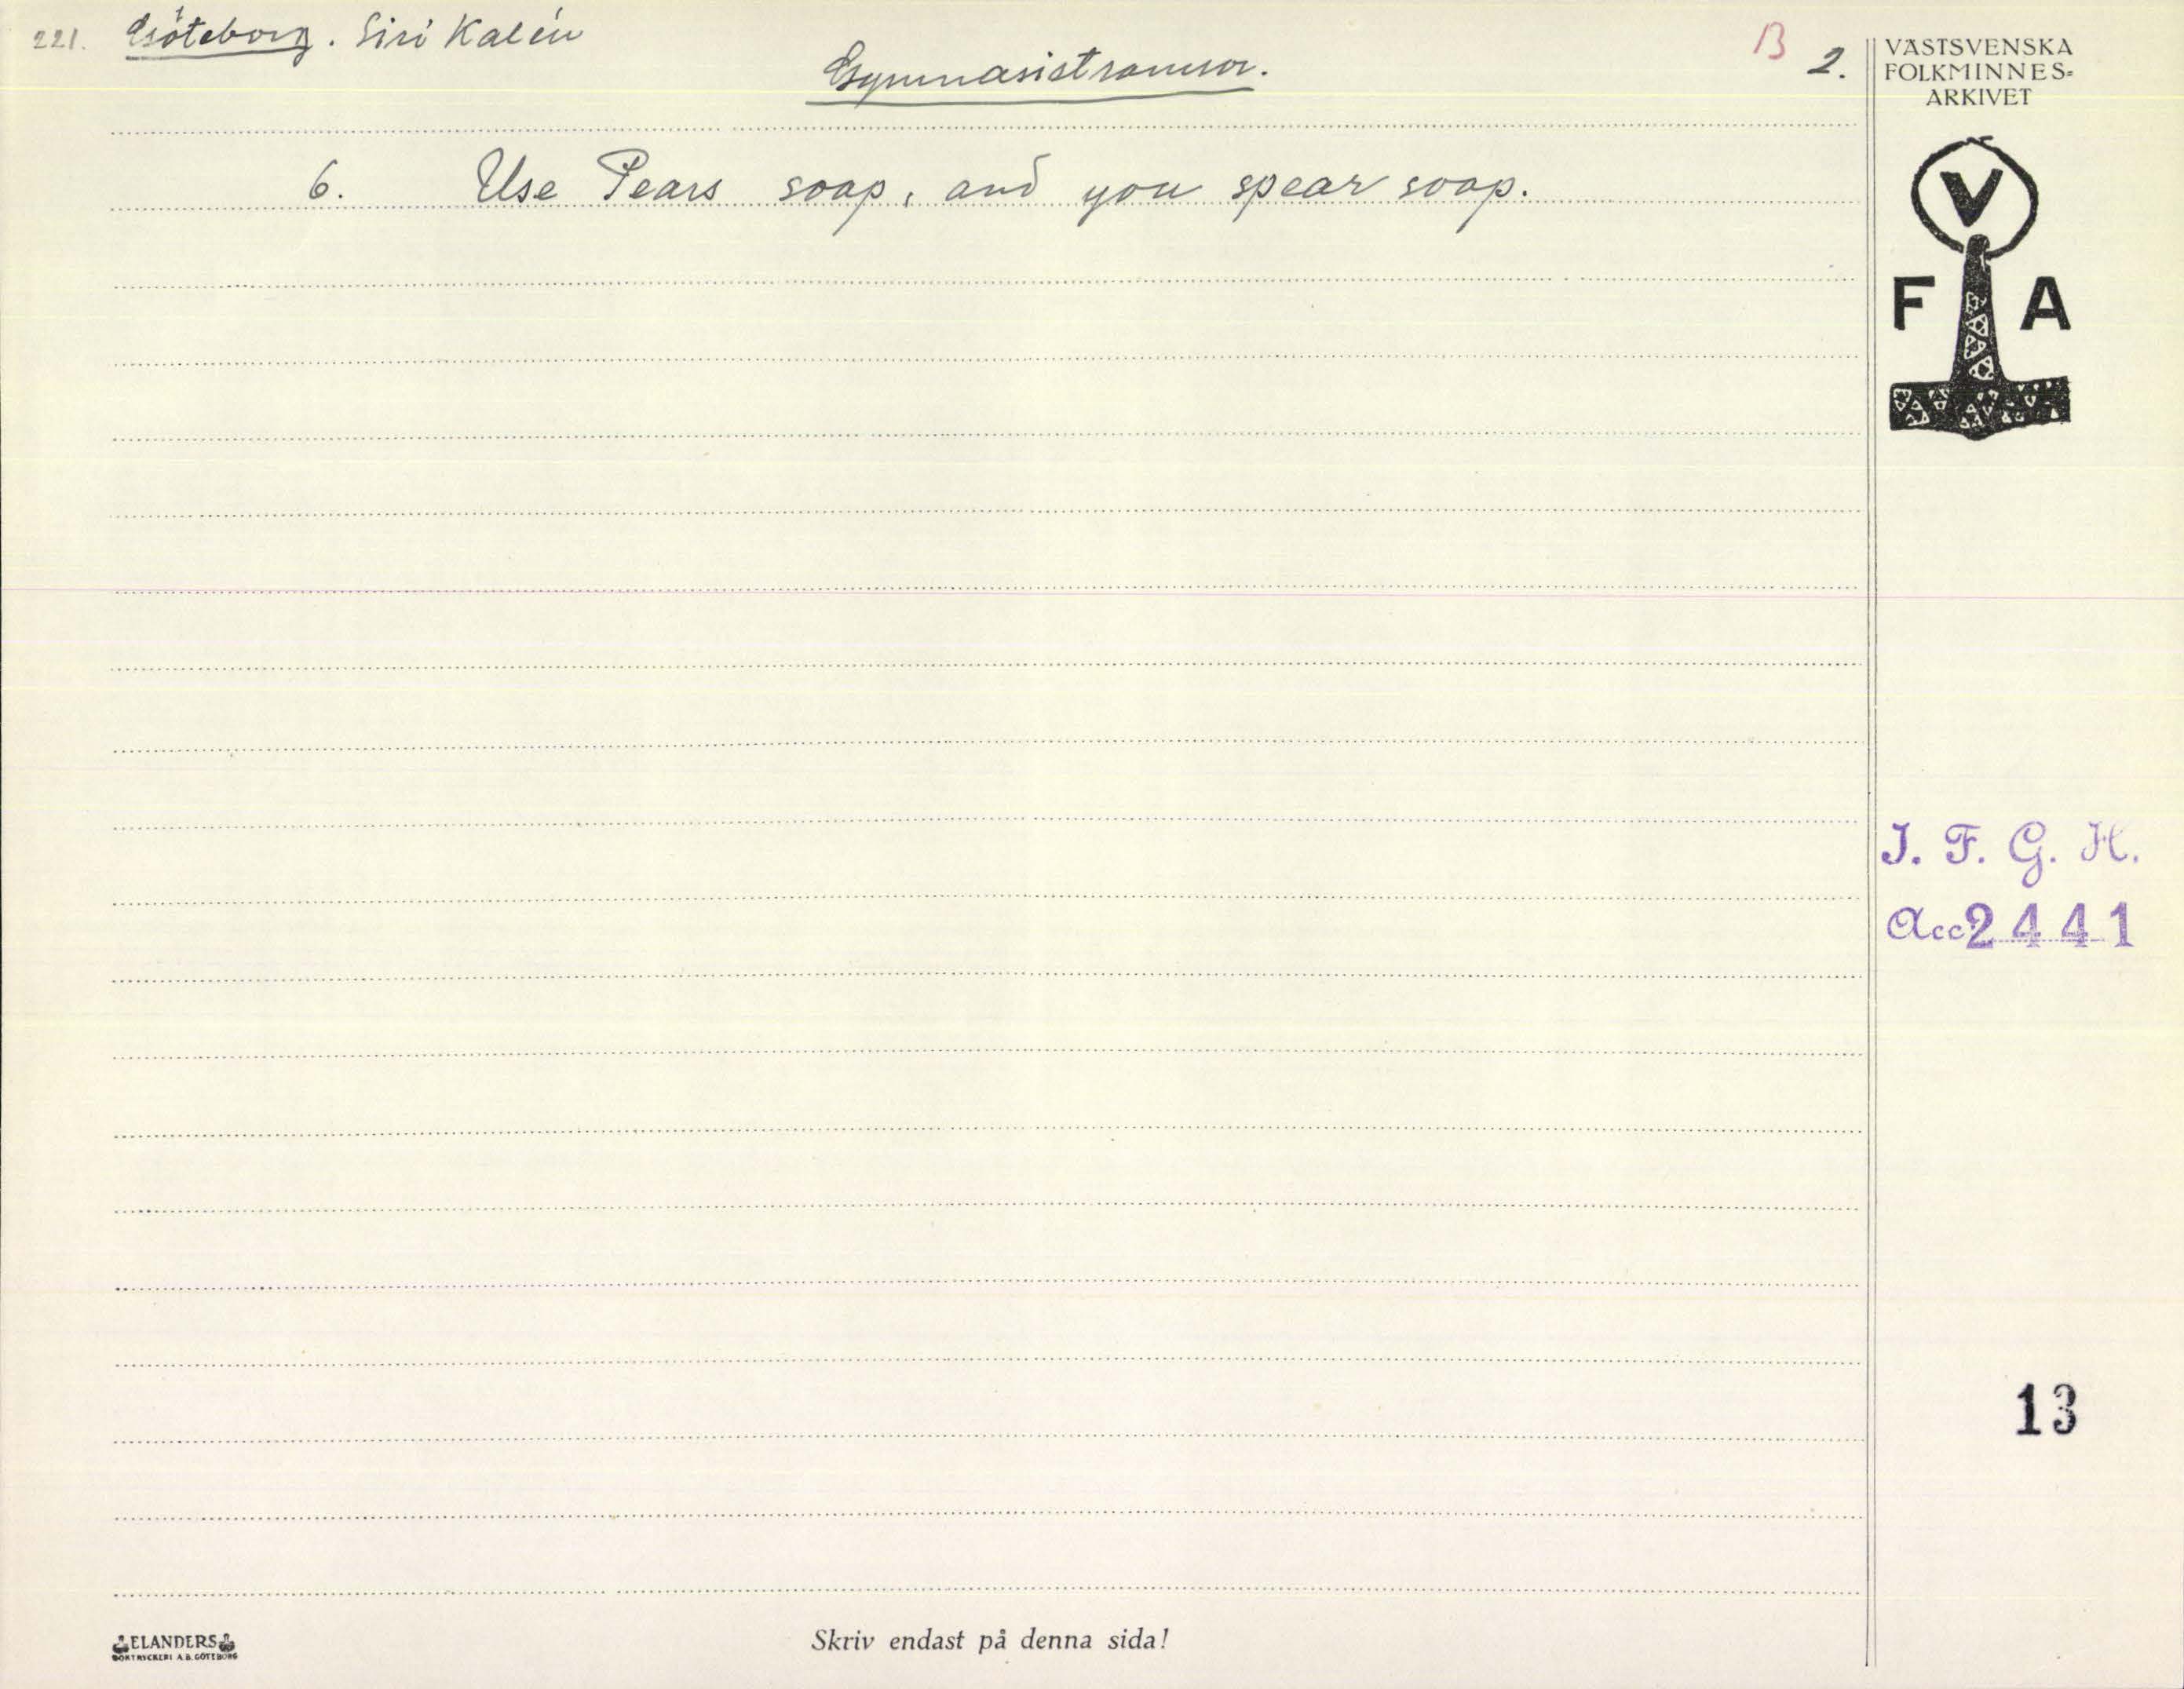 221. Göteborg. Siri Kalén
Gymnasistramsor.
B 2.
VÄSTSVENSKA
FOLKMINNES=
ARKIVET
6. Use Pears soap, and you spear soap.
V
F A
I. F. G. H.
Acc 2441
13
ELANDERS
BOKTRYCKERI A.B. GÖTEBORG
Skriv endast på denna sida!